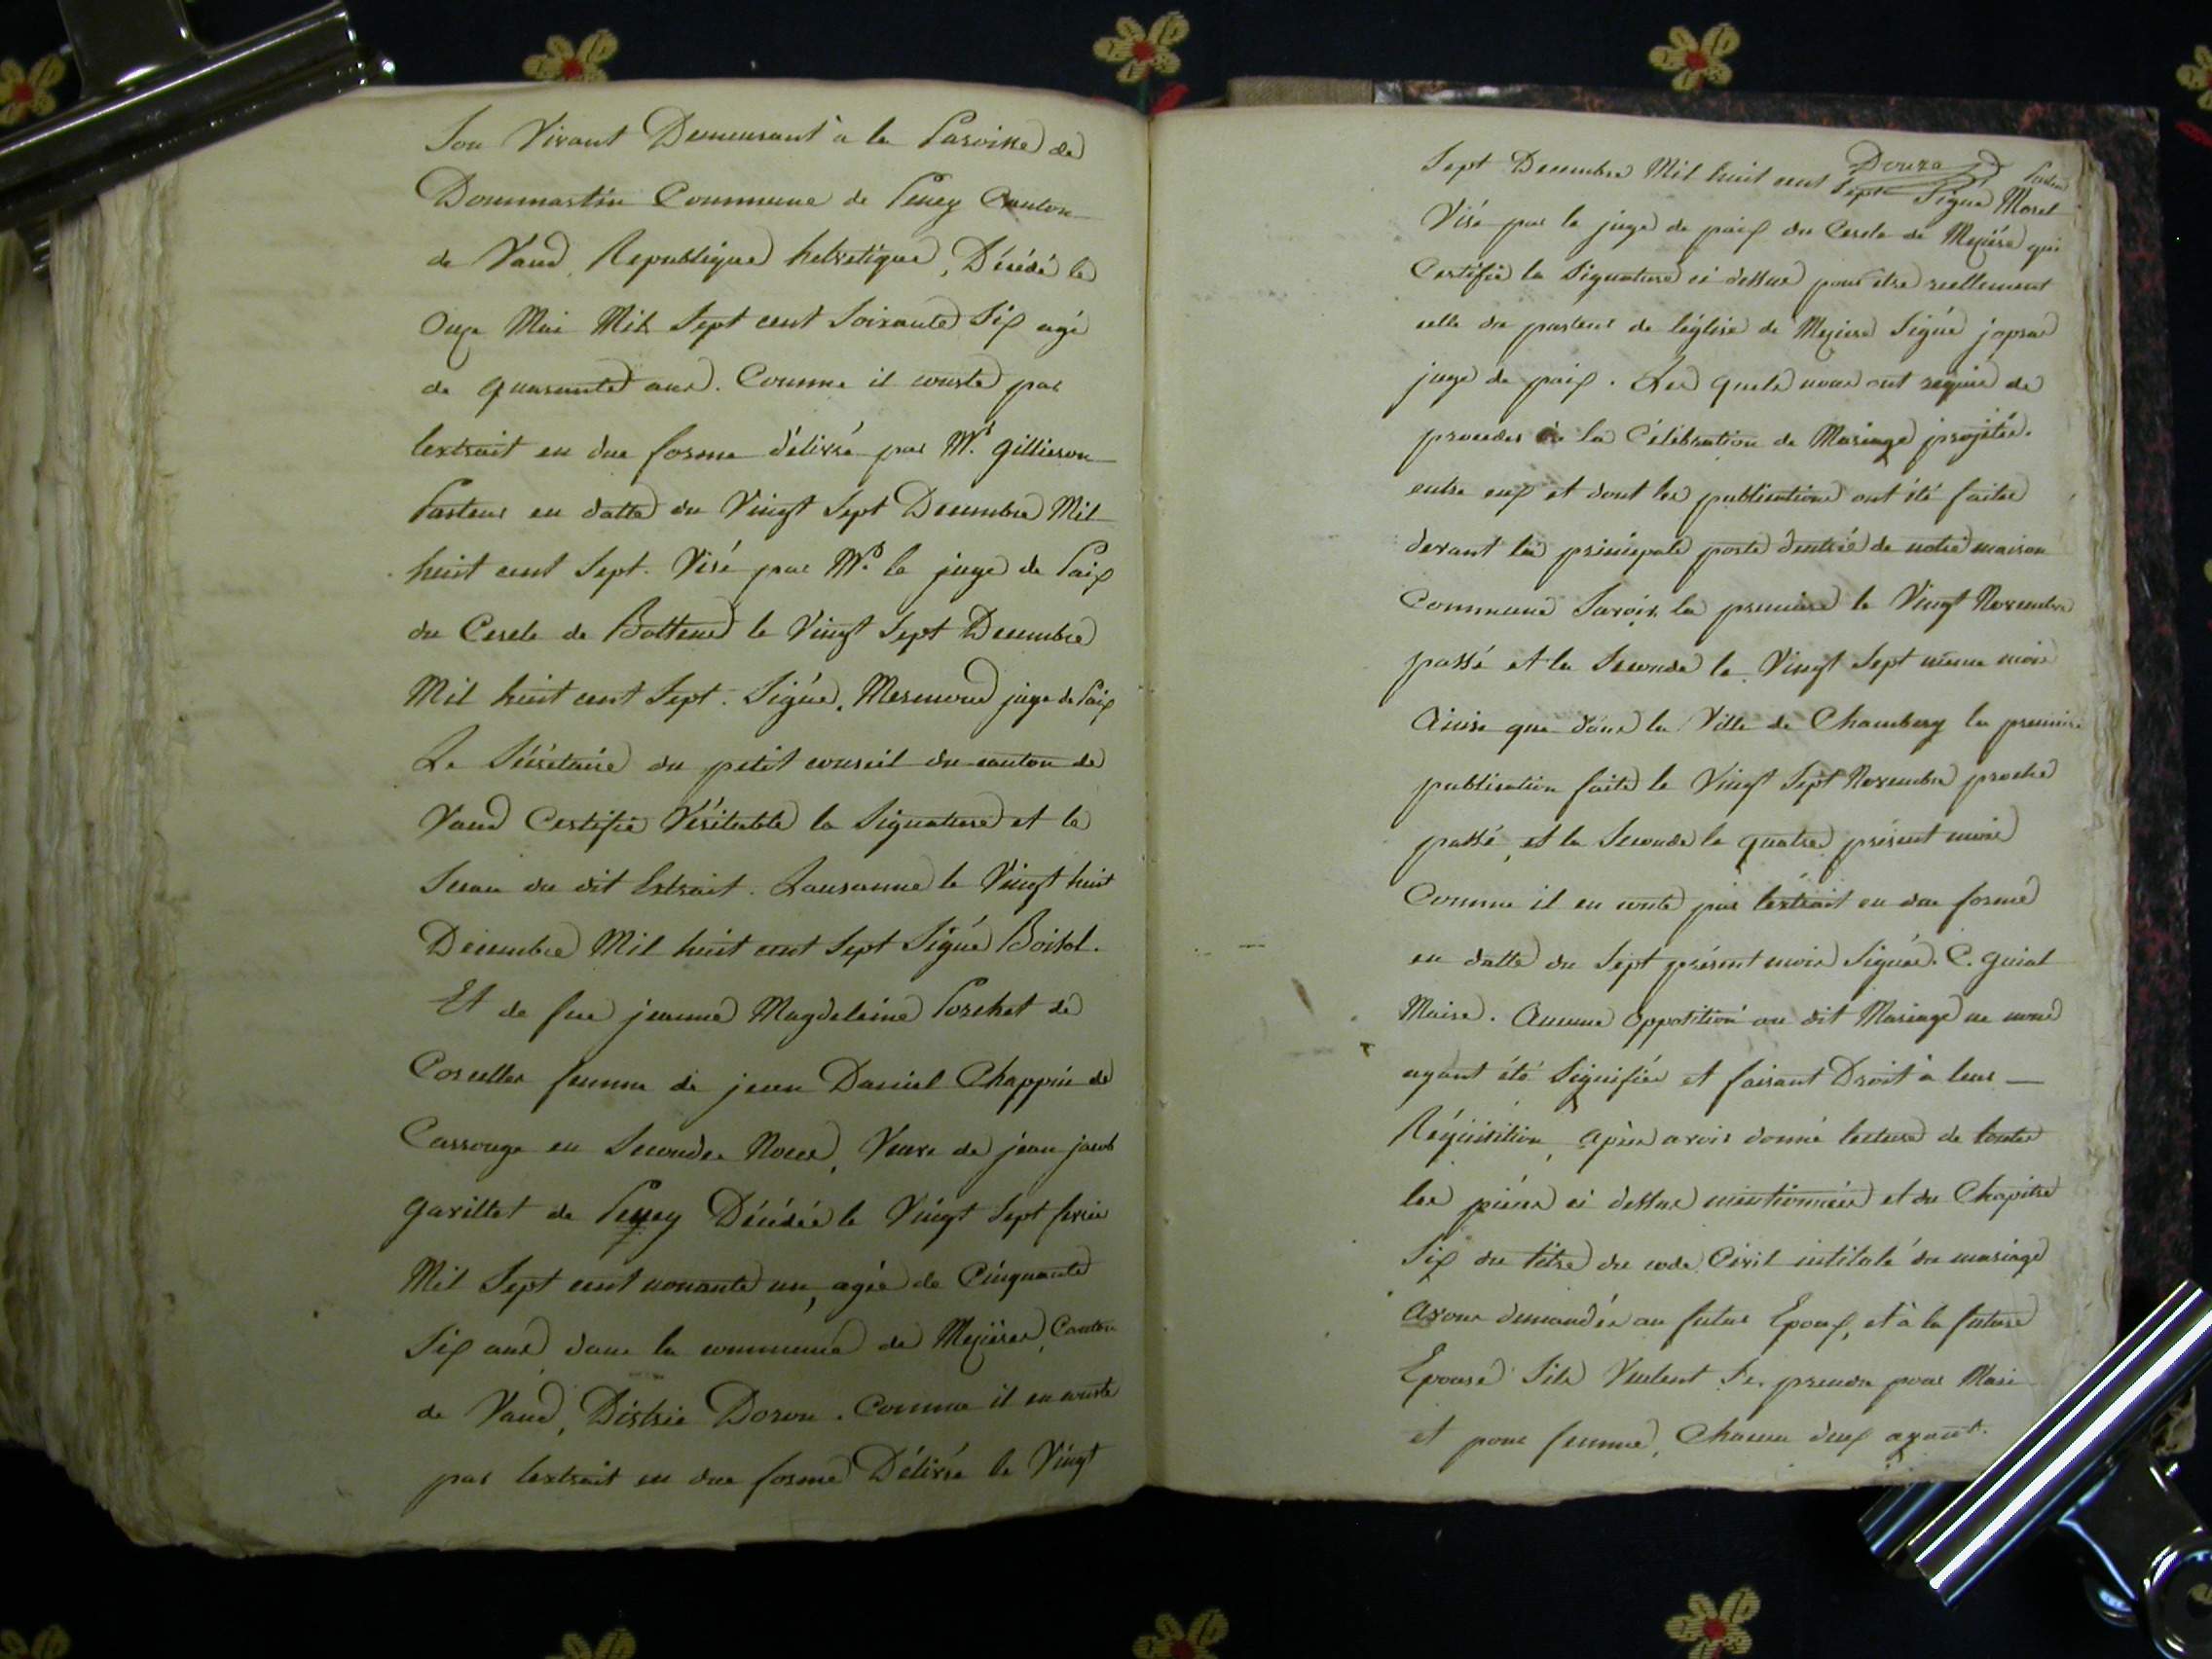 Son Vivant Demeurant à la Paroisse de
Dommartin Commune de Peney Canton
de Vaud, Republique helvetique, Décédé le
Onze Mai Mil Sept cent Soixante Six agé
de quarante ans. Comme il conste par
lextrait en due forme délivré par Mr. gillieron
Pasteur en datte du Vingt Sept Decembre Mil
huit cent Sept. Visé par Mr. le juge de Paix
du Cercle de Bottens le Vingt Sept Decembre
Mil huit cent Sept. Signé, Mermoud juge de Paix
Le Sécrétaire du petit conseil du canton de
Vaud Certifie Véritable la Signature et le
Sceau du dit Extrait. Lausanne le Vingt huit
Décembre Mil huit cent Sept Signé Boisot.
Et de feue jeanne Magdeleine Porchet de
Corcelles femme de jean Daniel Chappuis de
Carrouge en Secondes Noces, Veuve de jean jacob
gavillet de Peney Décédée le Vingt Sept fevrier
Mil Sept cent nonante un, agée de Cinquante
Six ans dans la commune de Mezières, Canton
de Vaud, District Doron. Comme il en conste
par lextrait en due forme Délivré le Vingt
Sept Decembre Mil huit cent Sept Signé Morel
Douze Pasteur
Visé par le juge de paix du Cercle de Mezière qui
Certifie la Signature ci dessus pour etre reellement
celle du pasteur de léglise de Mezière Signé
juge de paix. Les quels nous ont requis de
proceder à la Célébration de Mariage projetté
entre eux et dont les publications ont été faites
devant la principale porte dentrée de notre maison
Commune Savoir la premiere le Vingt Novembre
passé et la Seconde le Vingt Sept meme mois
Ainsi que dans la Ville de Chambery la premiere
publication faite le Vingt Sept Novembre proche
passé, et la Seconde le quatre présent mois
Comme il en conste par lextrait en due forme
en datte du Sept présent mois Signé C.
Maire. Aucune Opposition au dit Mariage ne nous
ayant été Signifiée et faisant Droit à leur
Réquisition, Après avoir donné lecture de toutes
les pièces ci dessus mentionnées et du Chapitre
Six du titre du code Civil intitulé du mariage
Avons demandés au futur Epoux, et à la future
Epouse Sils Veulent Se prendre pour Mari
et pour femme, Chacun deux ayant